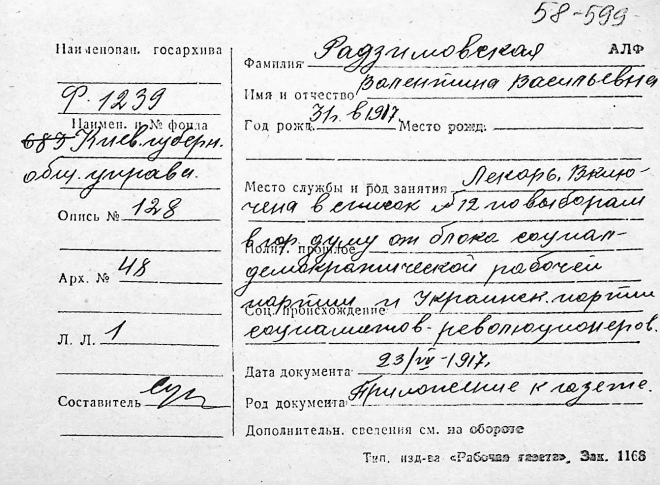 58-599
Наименован. госархива
Ф. 1239
Наимен. и № фонда
683 Киев. губерн.
общ. управа.
Опись № 128
Арх. № 48
Л. Л. 1
Составитель
АЛФ
Фамилия Радзимовская
Имя и отчество Валентина Васильевна
Год рожд. 31 г. в 1917 Место рожд.
Место службы и род занятия Лекарь. Вклю-
чена в список № 12 по выборам
в гор. думу от блока социал-
Полит. прошлое
демократической рабочей
партии и Украинск. партии
Соц. происхождение
социалистов-революционеров.
Дата документа 23/VII-1917г.
Род документа Приложение к газете.
Дополнительн. сведения см. на обороте
Тип. изд-ва «Рабочая газета», Зак. 1168